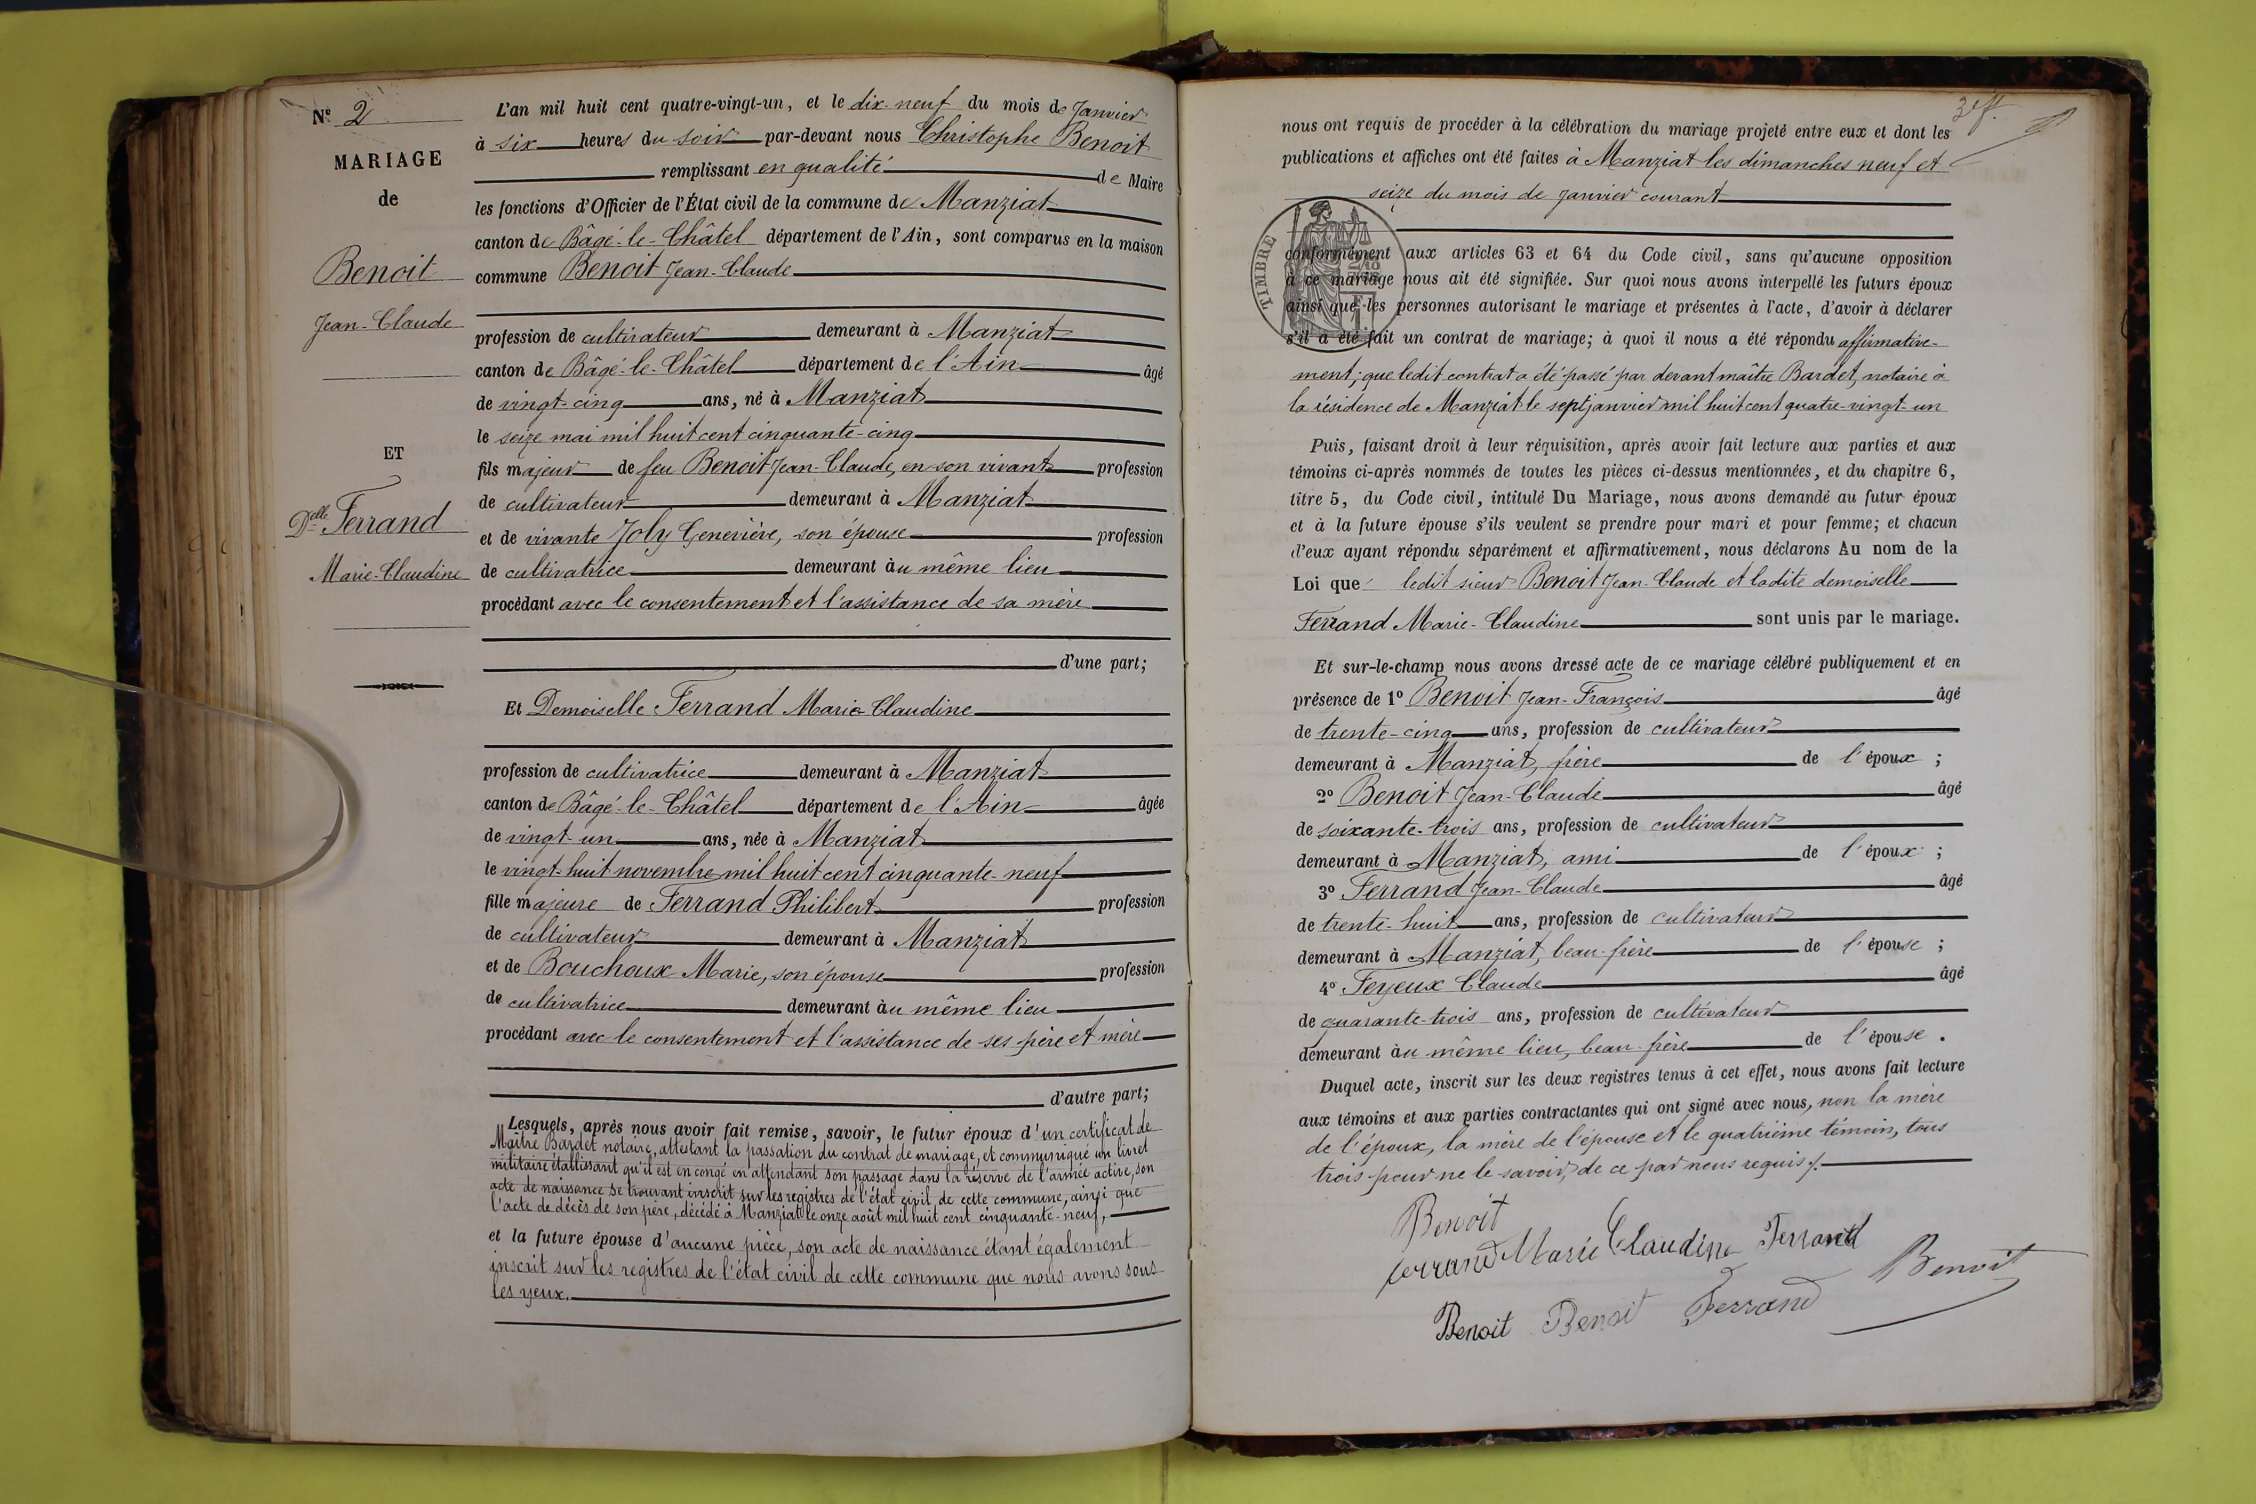 N° 2
MARIAGE
de
Benoit
Jean-Claude
ET
Delle Ferrand
Marie-Claudine
L'an mil huit cent quatre-vingt-un, et le dix-neuf du mois de Janvier
à six heures du soir par-devant nous Christophe Benoit
remplissant en qualité de Maire
les fonctions d'Officier de l'État civil de la commune de Manziat
canton de Bâgé-le-Châtel département de l'Ain, sont comparus en la maison
commune Benoit Jean-Claude
profession de cultivateur demeurant à Manziat
canton de Bâgé-le-Châtel département de l'Ain âgé
de vingt-cinq ans, né à Manziat
le seize mai mil huit cent cinquante-cinq
fils majeur de feu Benoit Jean-Claude, en son vivant profession
de cultivateur demeurant à Manziat
et de vivante Joly Geneviève, son épouse profession
de cultivatrice demeurant au même lieu
procédant avec le consentement et l'assistance de sa mère
d'une part;
Et Demoiselle Ferrand Marie Claudine
profession de cultivatrice demeurant à Manziat
canton de Bâgé-le-Châtel département de l'Ain âgée
de vingt-un ans, née à Manziat
le vingt-huit novembre mil huit cent cinquante-neuf
fille majeure de Ferrand Philibert profession
de cultivateur demeurant à Manziat
et de Bouchoux Marie, son épouse profession
de cultivatrice demeurant au même lieu
procédant avec le consentement et l'assistance de ses père et mère
d'autre part;
Lesquels, après nous avoir fait remise, savoir, le futur époux d'un certificat de
Maître Bardet notaire, attestant la passation du contrat de mariage, et communiqué un livret
militaire établissant qu'il est en congé en attendant son passage dans la réserve de l'armée active, son
acte de naissance se trouvant inscrit sur les registres de l'état civil de cette commune, ainsi que
l'acte de décès de son père, décédé à Manziat le onze août mil huit cent cinquante-neuf,
et la future épouse d'aucune pièce, son acte de naissance étant également
inscrit sur les registres de l'état civil de cette commune que nous avons sous
les yeux.
nous ont requis de procéder à la célébration du mariage projeté entre eux et dont les
publications et affiches ont été faites à Manziat les dimanches neuf et
seize du mois de Janvier courant
TIMBRE
conformément aux articles 63 et 64 du Code civil, sans qu'aucune opposition
à ce mariage nous ait été signifiée. Sur quoi nous avons interpellé les futurs époux
ainsi que les personnes autorisant le mariage et présentes à l'acte, d'avoir à déclarer
s'il a été fait un contrat de mariage; à quoi il nous a été répondu affirmative-
ment; que ledit contrat a été passé par devant maître Bardet, notaire à
la résidence de Manziat le sept janvier mil huit cent quatre-vingt-un
Puis, faisant droit à leur réquisition, après avoir fait lecture aux parties et aux
témoins ci-après nommés de toutes les pièces ci-dessus mentionnées, et du chapitre 6,
titre 5, du Code civil, intitulé Du Mariage, nous avons demandé au futur époux
et à la future épouse s'ils veulent se prendre pour mari et pour femme; et chacun
d'eux ayant répondu séparément et affirmativement, nous déclarons Au nom de la
Loi que ledit sieur Benoit Jean-Claude et ladite demoiselle
Ferrand Marie-Claudine sont unis par le mariage.
Et sur-le-champ nous avons dressé acte de ce mariage célébré publiquement et en
présence de 1° Benoit Jean-François âgé
de trente-cinq ans, profession de cultivateur
demeurant à Manziat, frère de l'époux ;
2° Benoit Jean-Claude âgé
de soixante-trois ans, profession de cultivateur
demeurant à Manziat, ami de l'époux ;
3° Ferrand Jean-Claude âgé
de trente-huit ans, profession de cultivateur
demeurant à Manziat, beau-frère de l'épouse ;
4° Feyeux Claude âgé
de quarante-trois ans, profession de cultivateur
demeurant au même lieu, beau-frère de l'épouse .
Duquel acte, inscrit sur les deux registres tenus à cet effet, nous avons fait lecture
aux témoins et aux parties contractantes qui ont signé avec nous, non la mère
de l'époux, la mère de l'épouse et le quatrième témoin, tous
trois pour ne le savoir, de ce par nous requis /.
Benoit
ferrand Marie Claudine Ferrand
Benoit
Benoit Benoit Ferrand